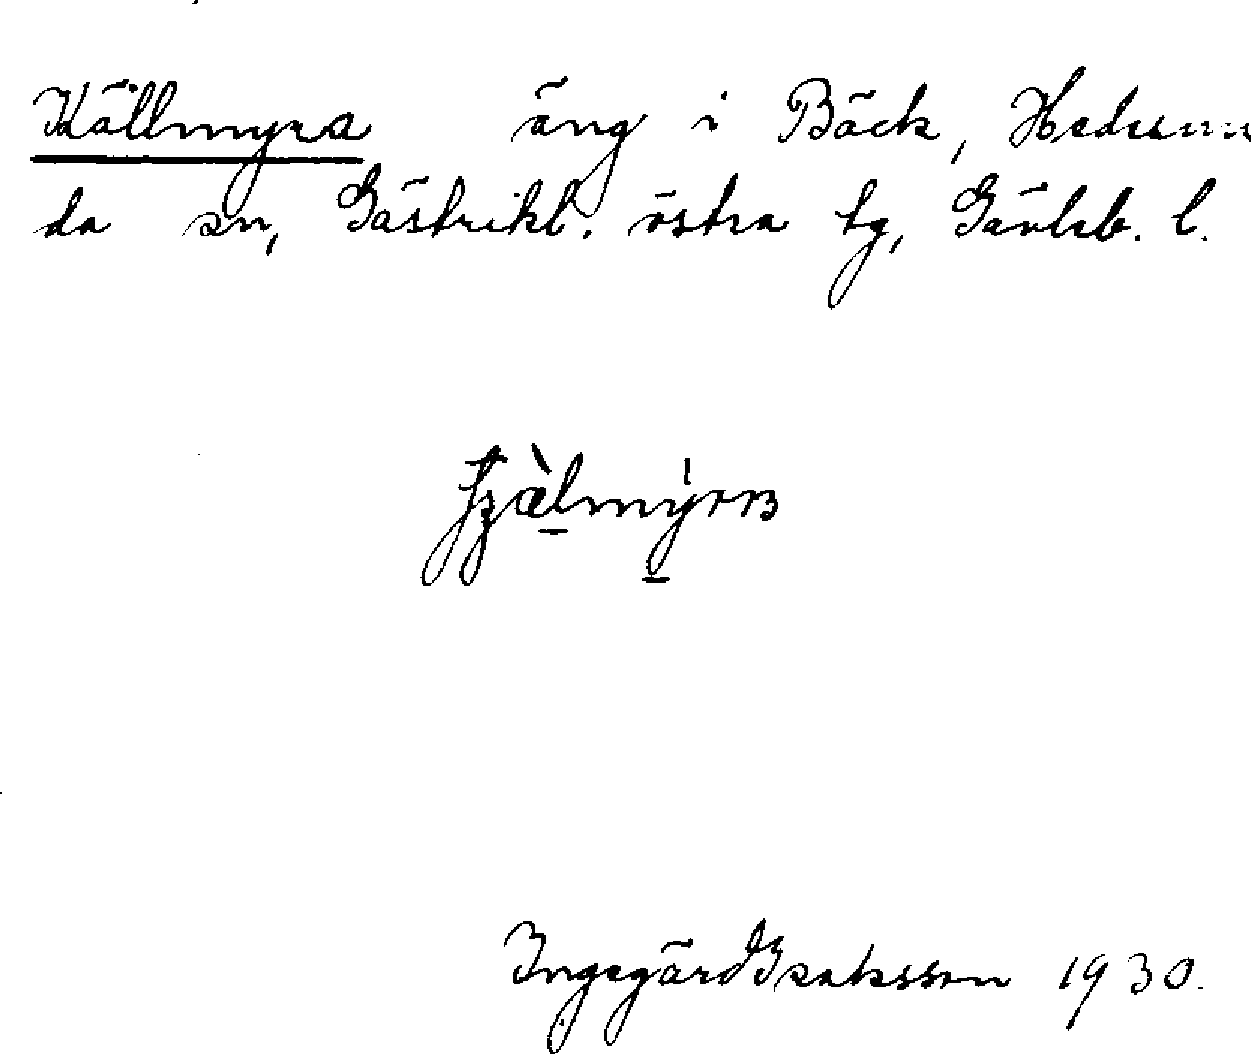 Källmyra äng i Bäck, Hedesun
da sn, Gästrikl. östra tg, Gävleb. l.
Ingegärd Isaksson 1930.